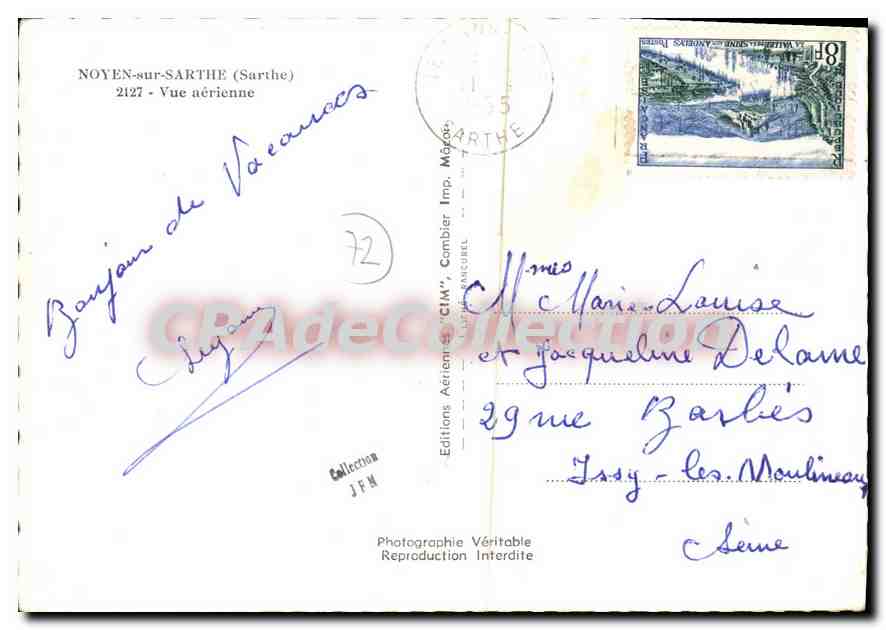 NOYEN-sur-SARTHE (Sarthe)
2127 - Vue aérienne
Bonjour de Vacances
72
Collection
JFM
Editions Aériennes "CIM", Combier Imp. Mâcon
Photographie Véritable
Reproduction Interdite
SARTHE
8F
LA VALLEE DE LA SEINE AUX ANDELYS POSTES
CPAdeCollection
Mmes Marie-Louise
et Jacqueline Delame
29 rue Barbés
Issy-les-Moulineaux
Seine